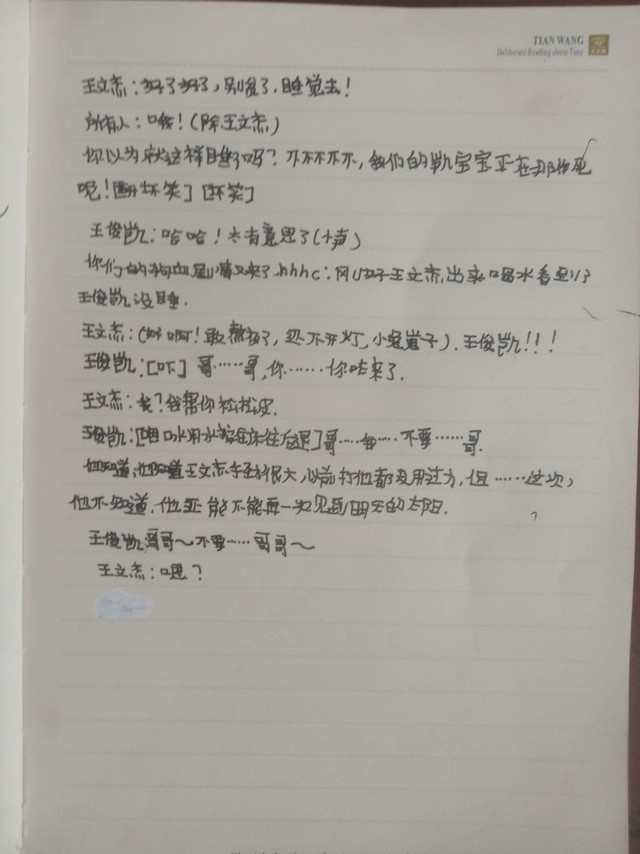 TIAN WANG
Deliberate Reading about Time
王文杰:好了好了,别说了.睡觉去!
所有人:哦!(除王文杰)
你以为就这样睡了吗?不不不不不,我们的凯宝宝正在那作死
呢![坏笑][坏笑]
王俊凯:哈哈!太有意思了(小声)
你们的狗血剧情又来了.hhhc:刚好王文杰出来喝水看到了
王俊凯没睡.
王文杰:(好啊!敢熬夜了,还不开灯,小兔崽子).王俊凯!!!
王俊凯:[吓]哥……哥,你……你咋来了.
王文杰:我?我帮你松松皮.
王俊凯:[咽口水]哥……我……不要……哥.
他知道,他知道王文杰手劲很大,以前打他都没用过力,但……这次,
他不知道,他还能不能再一次见到明天的太阳.
王俊凯:哥哥～不要……哥哥～
王文杰:嗯?